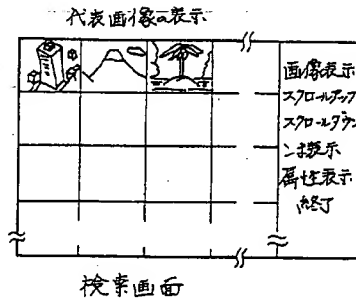 代表画像の表示
画像表示
スクロールアップ
スクロールダウン
こま表示
属性表示
終了
検索画面